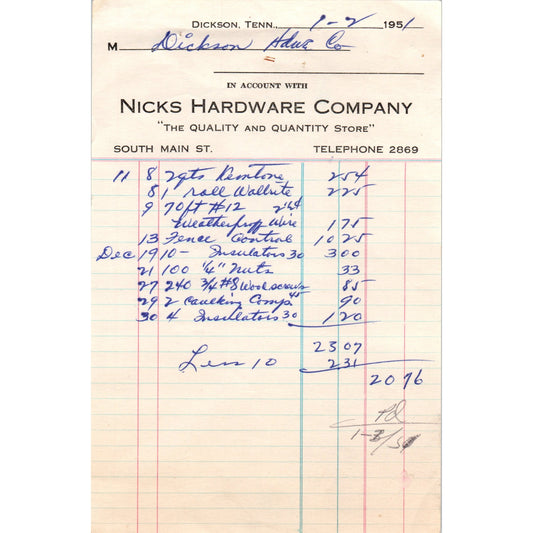 DICKSON, TENN., 1-2 1951
M Dickson Hdwe Co
IN ACCOUNT WITH
NICKS HARDWARE COMPANY
"THE QUALITY AND QUANTITY STORE"
SOUTH MAIN ST. TELEPHONE 2869
11 8 2 qts Kemtone 254
8 1 roll Wallrite 225
9 70 ft #12
Weatherproff Wire 175
13 Fence Control 10 25
Dec 19 10- Insulators 30 300
21 100 1/4" Nuts 33
27 240 3/4 #8 Wood screws 85
29 2 Caulking Comp 45 90
30 4 Insulators 30 120
23 07
Less 10 231
20 76
Pd